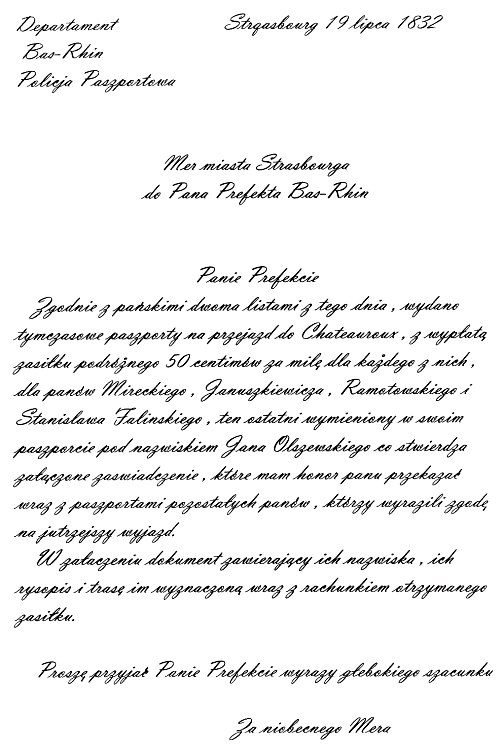 Departament Strqasbourg 19 lipca 1832
Bas-Rhin
Policja Paszportowa
Mer miasta Strasbourga
do Pana Prefekta Bas-Rhin
Panie Prefekcie
Zgodnie z pańskimi dwoma listami z tego dnia , wydano
tymczasowe paszporty na przejazd do Chateauroux , z wypłatą
zasiłku podróżnego 50 centimów za milę dla każdego z nich ,
dla panów Mireckiego , Januszkiewicza , Ramotowskiego i
Stanisława Falinskiego , ten ostatni wymieniony w swoim
paszporcie pod nazwiskiem Jana Olszewskiego co stwierdza
załączone zaswiadczenie , które mam honor panu przekazać
wraz z paszportami pozostałych panów , którzy wyrazili zgodę
na jutrzejszy wyjazd.
W załaczeniu dokument zawierający ich nazwiska , ich
rysopis i trasę im wyznaczoną wraz z rachunkiem otrzymanego
zasiłku.
Proszę przyjać Panie Prefekcie wyrazy głebokiego szacunku
Za niobecnego Mera